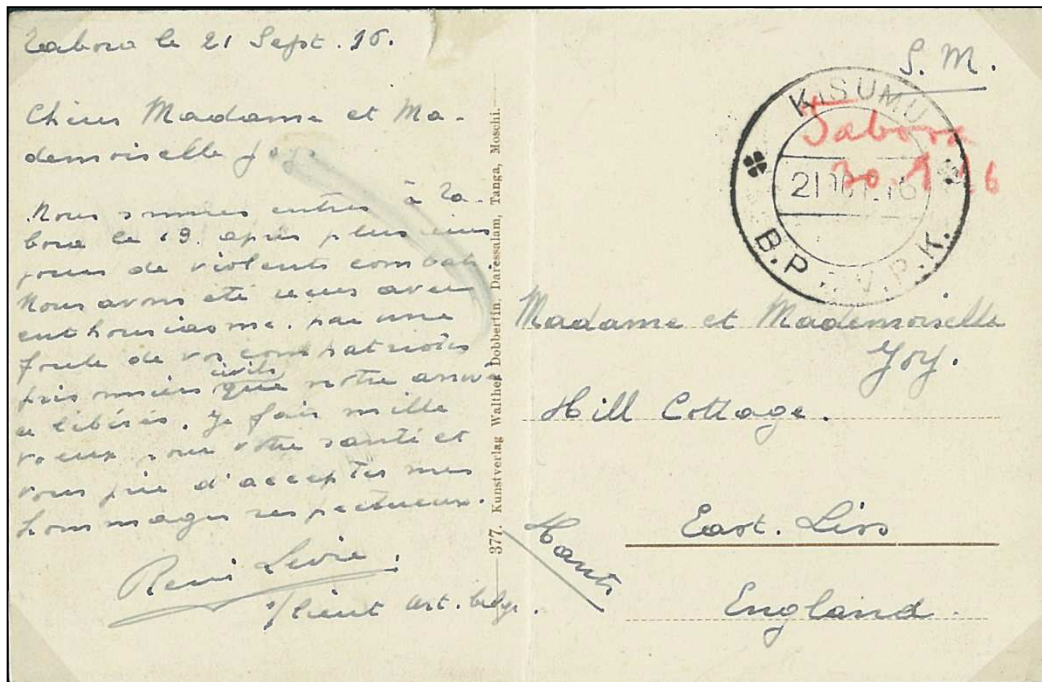 Tabora le 21 Sept. 16.
Chères Madame et Ma-
demoiselle Joy.
Nous sommes entrés à Ta-
bora le 19. après plusieurs
jours de violents combats.
Nous avons été reçus avec
enthousiasme. par une
foule de vos compatriotes
prisonniers civils que notre
a libérés. Je fais mille
voeux pour votre santé et
vous prie d'accepter mes
hommages respectueux.
René
Lieut art. belge.
377. Kunstverlag Walther Dobbertin, Daressalam, Tanga, Moschi.
S. M.
KISUMU
B.P. V.P.K.
Tabora
Madame et Mademoiselle
Joy.
Hill Cottage.
East. Liss
Hants
England.